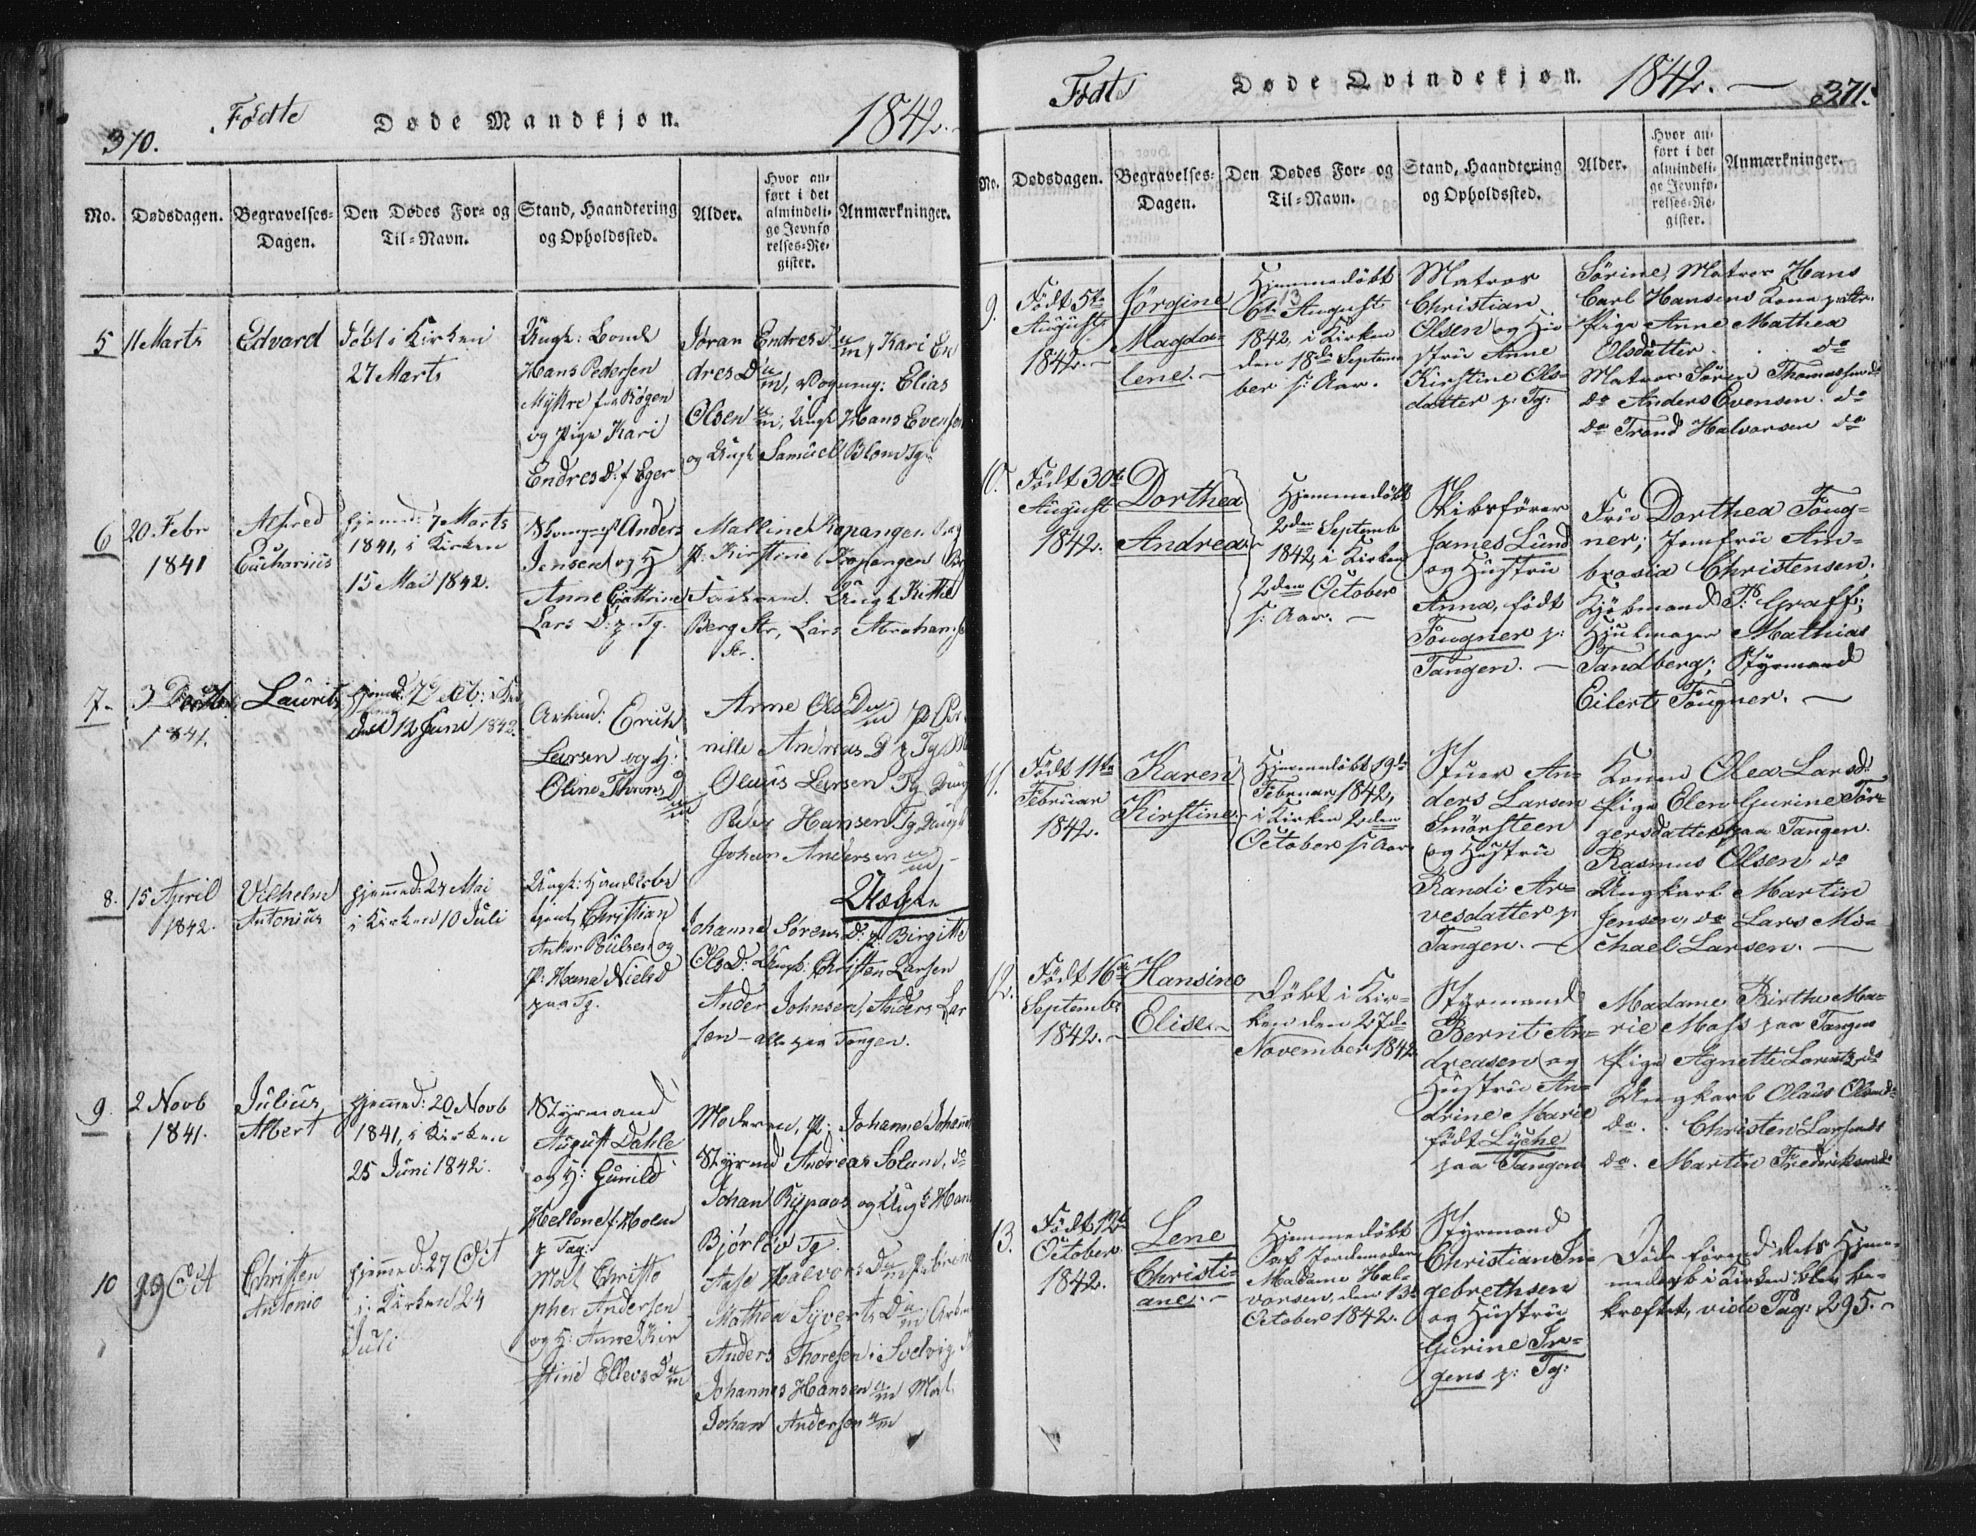 370.
Födte
Døde Mandkjøn.
1842.
No.
Dødsdagen.
Begravelses-
Dagen.
Den Dødes For- og
Til-Navn.
Stand, Haandtering
og Opholdssted.
Alder.
Hvor an-
ført i det
almindeli-
ge Jevnfø
relses-Re-
gister.
Anmærkninger.
5
11 Marts
Edvard
Döbt i Kirken
27 Marts
Ungk: Bonde
Hans Pedersen
Mykre fra Rögen
og Pige Kari
Endres D: f Eger
Jöran Endres D.
Kari En
dres D
Elias
Olsen
Ungk Hans Evensen
og Ungk Samuel Blom Tg:
6
20 Febr
1841
Alfred
Eucharius
hjemmed: 7 Marts
1841, i Kirken
15 Mai 1842.
Anders
Jensen og H
Anne Cathrine
Lars D: p. Tg.
Malline Kopangen
P: Kirstine Kopangen
Ungk Kittil
Berg Str, Lars Abrahams
Str.
7
3
1841.
Laurits
den 12 Juni 1842.
Arbmd: Erich
Larsen og H:
Oline Throns D
Anne Ols D
p Per
nille Andreas D p Tg
Olaus Larsen Tg Ungk
Peder Hansen Tg Ungk
Johan Andersen
8.
15 April
1842.
Vilhelm
Antonius
hjemmed: 27 Mai
i Kirken 10 Juli
Ungk: Handelsbe
tjent Christian
Anker Poulsen og
P: Hana Nielsd
paa Tg.
Uægte
Johanne Sörens D: P. Birgitte
Ols D: Ungk: Christen Larsen
Anders Johnsen, Anders Lar
sen – alle paa Tangen.
9.
2 Novb
1841.
Julius
Albert
hjemmed: 20 Novb
1841, i Kirken
25 Juni 1842.
Styrmand
August Dahle
og H: Gunild
Hellene f: Holm
p Tag:
Moderen, P: Johanne Johann
Styrmd Andreas Solum, do
Johan Rypaas og Ungk Hans
Björlöv Tg.
10
29 Oct
Christen
Antonio
hjemmed: 27 Oct
i Kirken 24
Juli
Mat. Christo
pher Andersen
og H: Anne Kir
stine Ellevs D
Aase Halvors D
Mathea Syverts D
Anders Thoresen i Svelvig
Johannes Hansen
Mat.
Johan Andersen
Födte
Døde Qvindekjøn.
1842. —
371.
No.
Dødsdagen.
Begravelses-
Dagen.
Den Dødes For- og
Til-Navn.
Stand, Haandtering
og Opholdssted.
Alder.
Hvor an-
ført i det
almindeli-
ge Jevnfø-
relses-Re-
gister.
Anmærkninger.
9.
Födt 5te
August
1842. —
Jørgine
Magda-
lene. —
Hjemmedöbt
13 August
1842, i Kirken
den 18de Septem
ber s: Aar.
Matros
Christian
Olsen og Hu-
stru Anne
Kirstine Ols-
datter p: Tg:
Sörine, Matros Hans
Carl Hansens Kone
Pige Anne Mathea
Olsdatter. do
Matros Sören Thomassen do
do Anders Evensen. do
do Trond Halvorsen do
10.
Födt 30te
August
1842.
Dorthea
Andrea. —
Hjemmedöbt
2den Septemb
1842, i Kirken
2den October
s: Aar. —
Skibsförer
James Lund
og Hustru
Anna, födt
Fougner p:
Tangen. —
Fru Dorthea Foug-
ner; Jomfru Am-
brosia Christensen;
Kjöbmand P: Graff;
Hjulmager Mathias
Tandberg; Styrmand
Eilert Fougner. —
11.
Födt 11te
Februar
1842.
Karen
Kirstine. —
Hjemmedöbt 19de
Februar 1842,
i Kirken 2den
October s: Aar
Stuer An-
ders Larsen
Smörsteen
og Hustru
Randi Ar-
vesdatter p:
Tangen. —
Konen Olea Larsd:
Pige Elen Gurine Tör-
gersdatter, paa Tangen.
Rasmus Olsen do
Ungkarl Martin
Jensen, do Lars Mi-
chael Larsen. —
12.
Födt 16de
Septembr
1842. —
Hansine
Elise. —
Döbt i Kir-
ken den 27de
November 1842.
Styrmand
Bernt An-
dreasen og
Hustru An-
drine Marie
födt Lyche
paa Tangen
Madame Birthe Ma-
rie Mass paa Tangen
Pige Agnette Lorentz do
Ungkarl Olaus Olsen do
do. Christen Larsen do
do. Martin Fredriksen do
13.
Födt 12te
October
1842.
Lene
Christi-
ane. —
Hjemmedöbt
af Jordemoder
Madame Hal-
vorsen, den 13de
October 1842.
Styrmand
Christian In-
gebrethsen
og Hustru
Gurine In-
gens p: Tg:
Döde förend dets Hjem-
medaab i Kirken blev be-
kræftet, vide Pag: 295. —